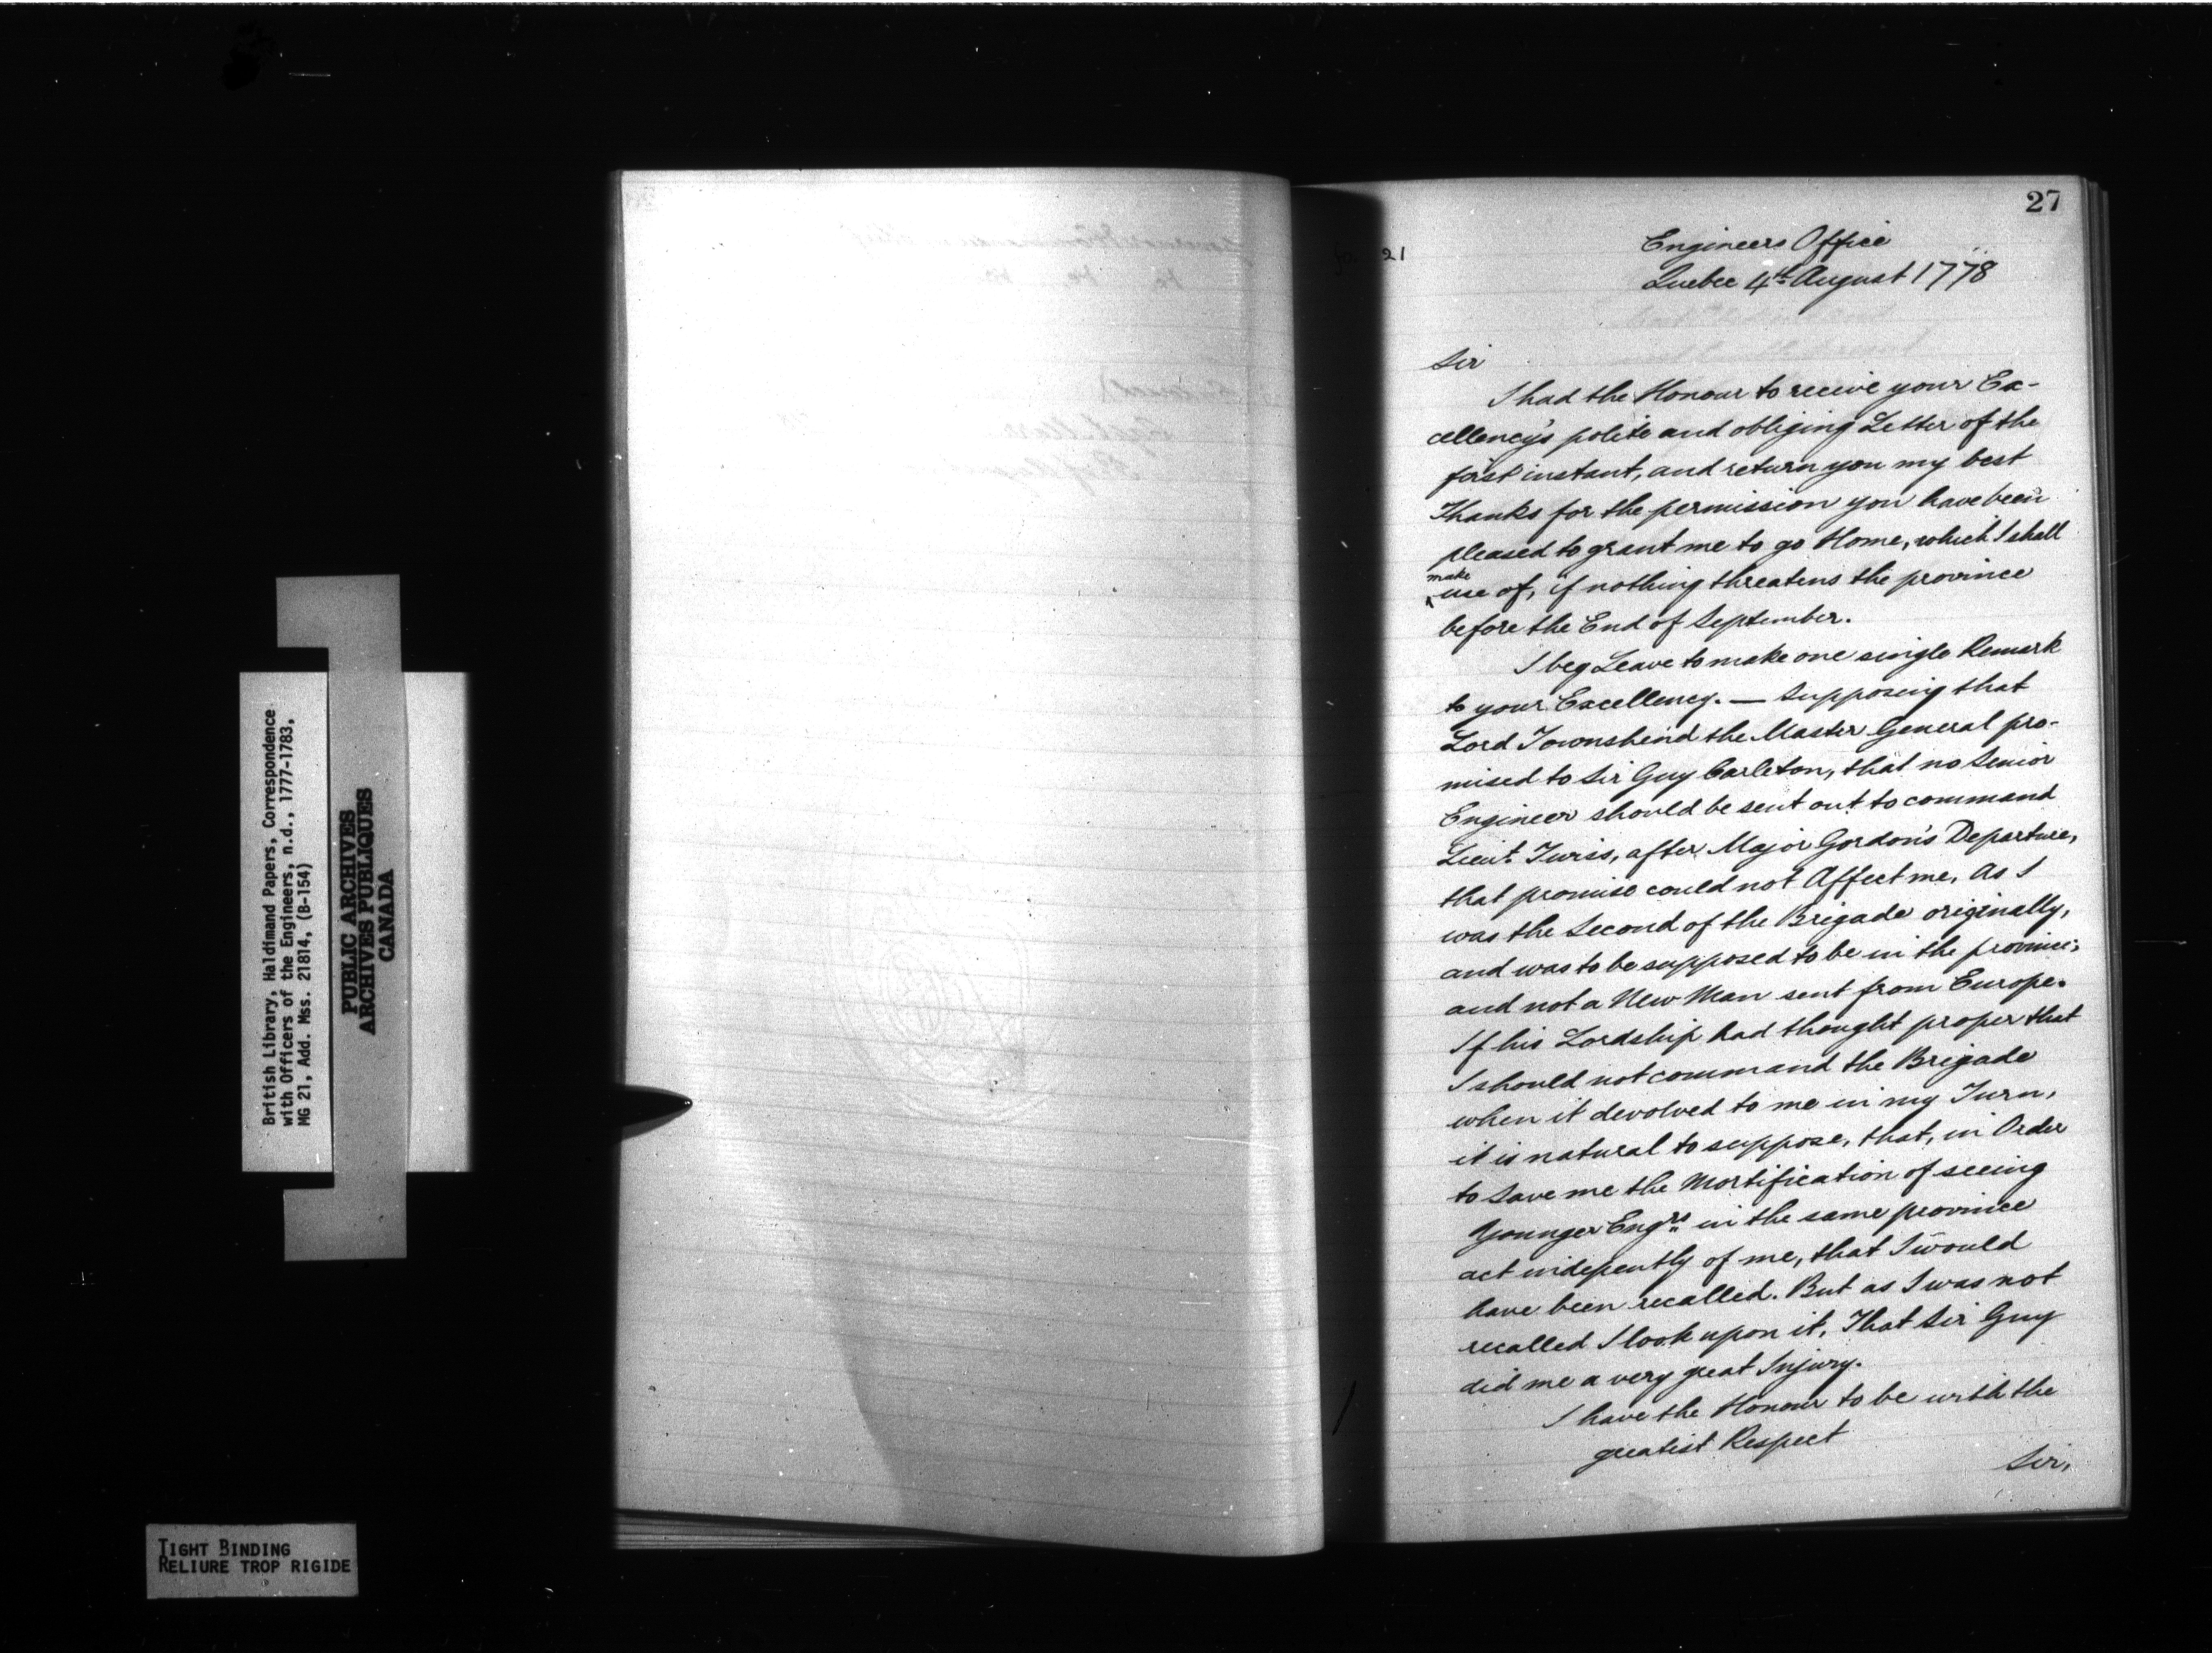 27
21
Engineers Office
Quebec 4th August 1778
Sir
I had the Honour to receive your Ex-
cellency's polite and obliging Letter of the
first instant, and return you my best
Thanks for the permission you have been
pleased to grant me to go Home, which I shall
make
use of, if nothing threatens the province
before the End of September.
I beg Leave to make one single Remark
to your Excellency. — Supposing that
Lord Townshend the Master General pro-
mised to Sir Guy Carleton, that no Senior
Engineer should be sent out to command
Lieut. Twiss, after Major Gordon's Departure,
that promise could not Affect me, As I
was the Second of the Brigade originally,
and was to be supposed to be in the province;
and not a New Man sent from Europe.
If his Lordship had thought proper that
I should not command the Brigade
when it devolved to me in my Turn,
it is natural to suppose, that, in Order
to save me the Mortification of seeing
Younger Engrs in the same province
act indepently of me, that I would
have been recalled. But as I was not
recalled I look upon it, That Sir Guy
did me a very great Injury.
I have the Honour to be with the
greatest Respect
Sir,
British Library, Haldimand Papers, Correspondence
with Officers of the Engineers, n.d., 1777-1783,
MG 21, Add. Mss. 21814, (B-154)
PUBLIC ARCHIVES
ARCHIVES PUBLIQUES
CANADA
TIGHT BINDING
RELIURE TROP RIGIDE